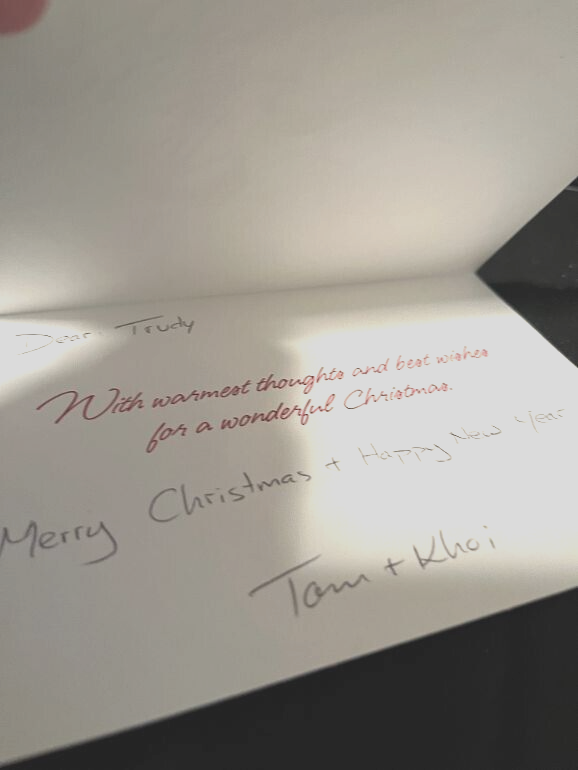 Dear Trudy
With warmest thoughts and best wishes
for a wonderful Christmas.
Merry Christmas + Happy New Year
Tam + Khoi